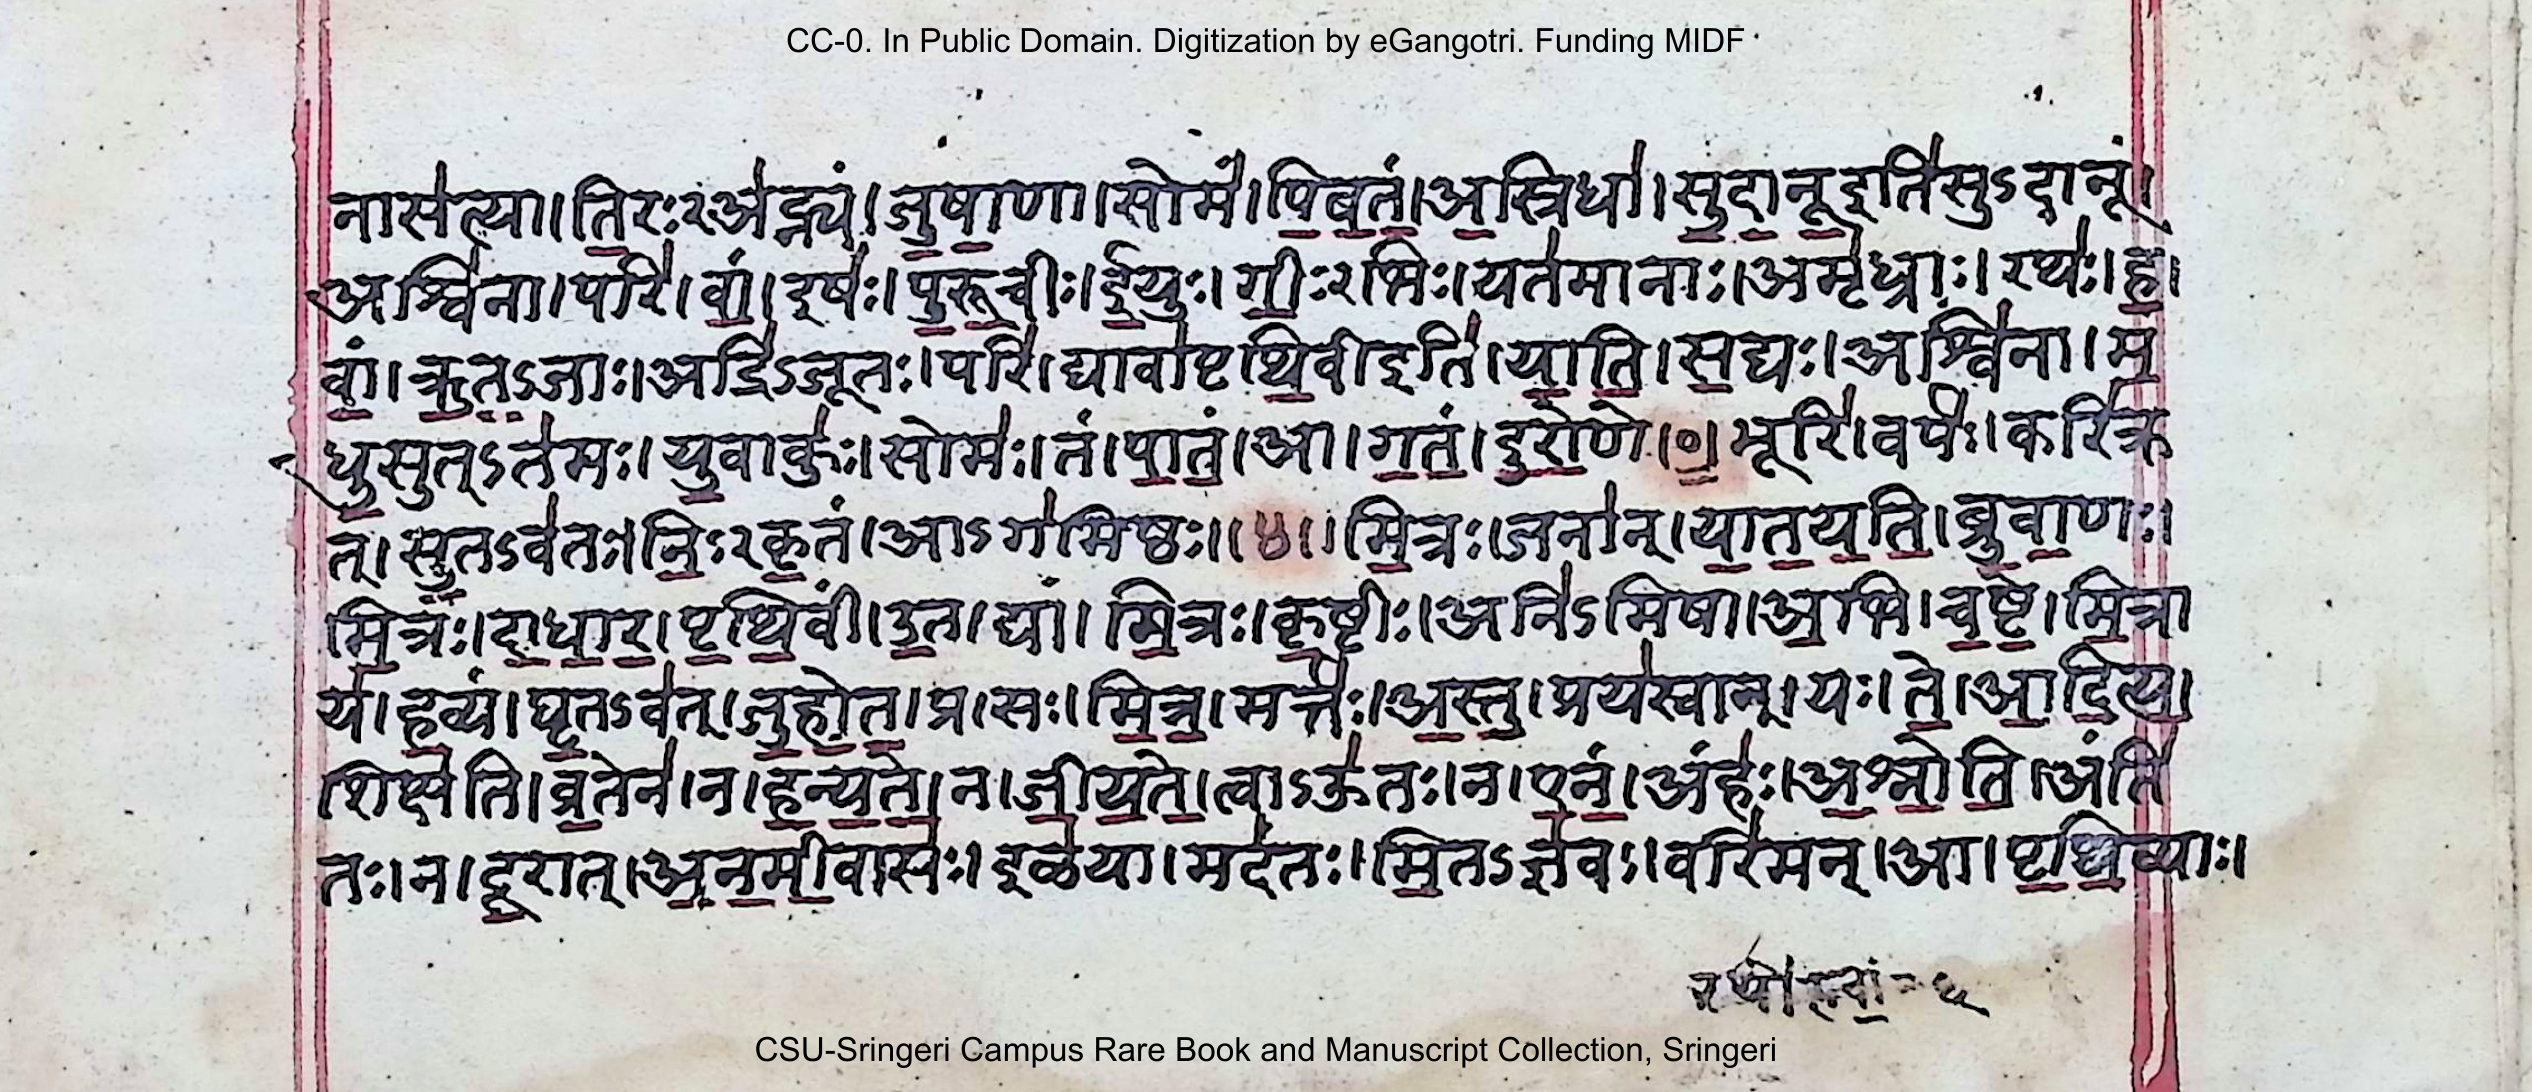 CC-0. In Public Domain. Digitization by eGangotri. Funding MIDF
नास॑त्या।ति॒रःऽअ॑ह्न्यं।जु॒षा॒णा।सोमं॑।पि॒ब॒तं॒।अ॒स्रिधा॑।सु॒दा॒नू॒इति॑सुऽदानू।
अश्वि॑ना।परि॑।वां॒।इषः॑।पु॒रू॒चीः।ई॒युः।गीः॒ऽभिः।यत॑मानाः।अमृ॑ध्राः।रथः॑।ह॒।
वां॒।ऋ॒त॒ऽजाः।अद्रि॑ऽजूतः।परि॑।द्यावा॑पृथि॒वीइति॑।या॒ति॒।स॒द्यः।अश्वि॑ना।म॒
धु॒सुत्ऽत॑मः।यु॒वाकुः॑।सोमः॑।तं।पा॒तं॒।आ।ग॒तं॒।दु॒रो॒णे।०॒।भूरि॑।वर्पः॑।करि॑क्र
त्।सु॒तऽव॑तः।निः॒ऽकृ॒तं।आऽग॑मिष्ठः॥४॥मि॒त्रः।जना॑न्।या॒त॒य॒ति॒।ब्रु॒वा॒णः।
मि॒त्रः।दा॒धा॒र॒।पृ॒थि॒वीं।उ॒त।द्यां।मि॒त्रः।कृ॒ष्टीः।अनि॑ऽमिषा।अ॒भि।च॒ष्टे॒।मि॒त्रा
य॑।ह॒व्यं।घृ॒तऽव॑त्।जु॒हो॒त॒।प्र।सः।मि॒त्र॒।मर्त्तः॑।अ॒स्तु॒।प्रय॑स्वान्।यः।ते॒।आ॒दि॒त्य॒।
शिक्ष॑ति।व्र॒तेन॑।न।ह॒न्य॒ते॒।न।जी॒य॒ते॒।त्वाऽऊ॑तः।न।ए॒नं॒।अंहः॑।अ॒श्नो॒ति॒।अंति॑
तः।न।दू॒रात्।अ॒न॒मी॒वासः॑।इळ॑या।मदं॑तः।मि॒तऽज्ञ॑वः।वरि॑मन्।आ।पृ॒थि॒व्याः।
CSU-Sringeri Campus Rare Book and Manuscript Collection, Sringeri